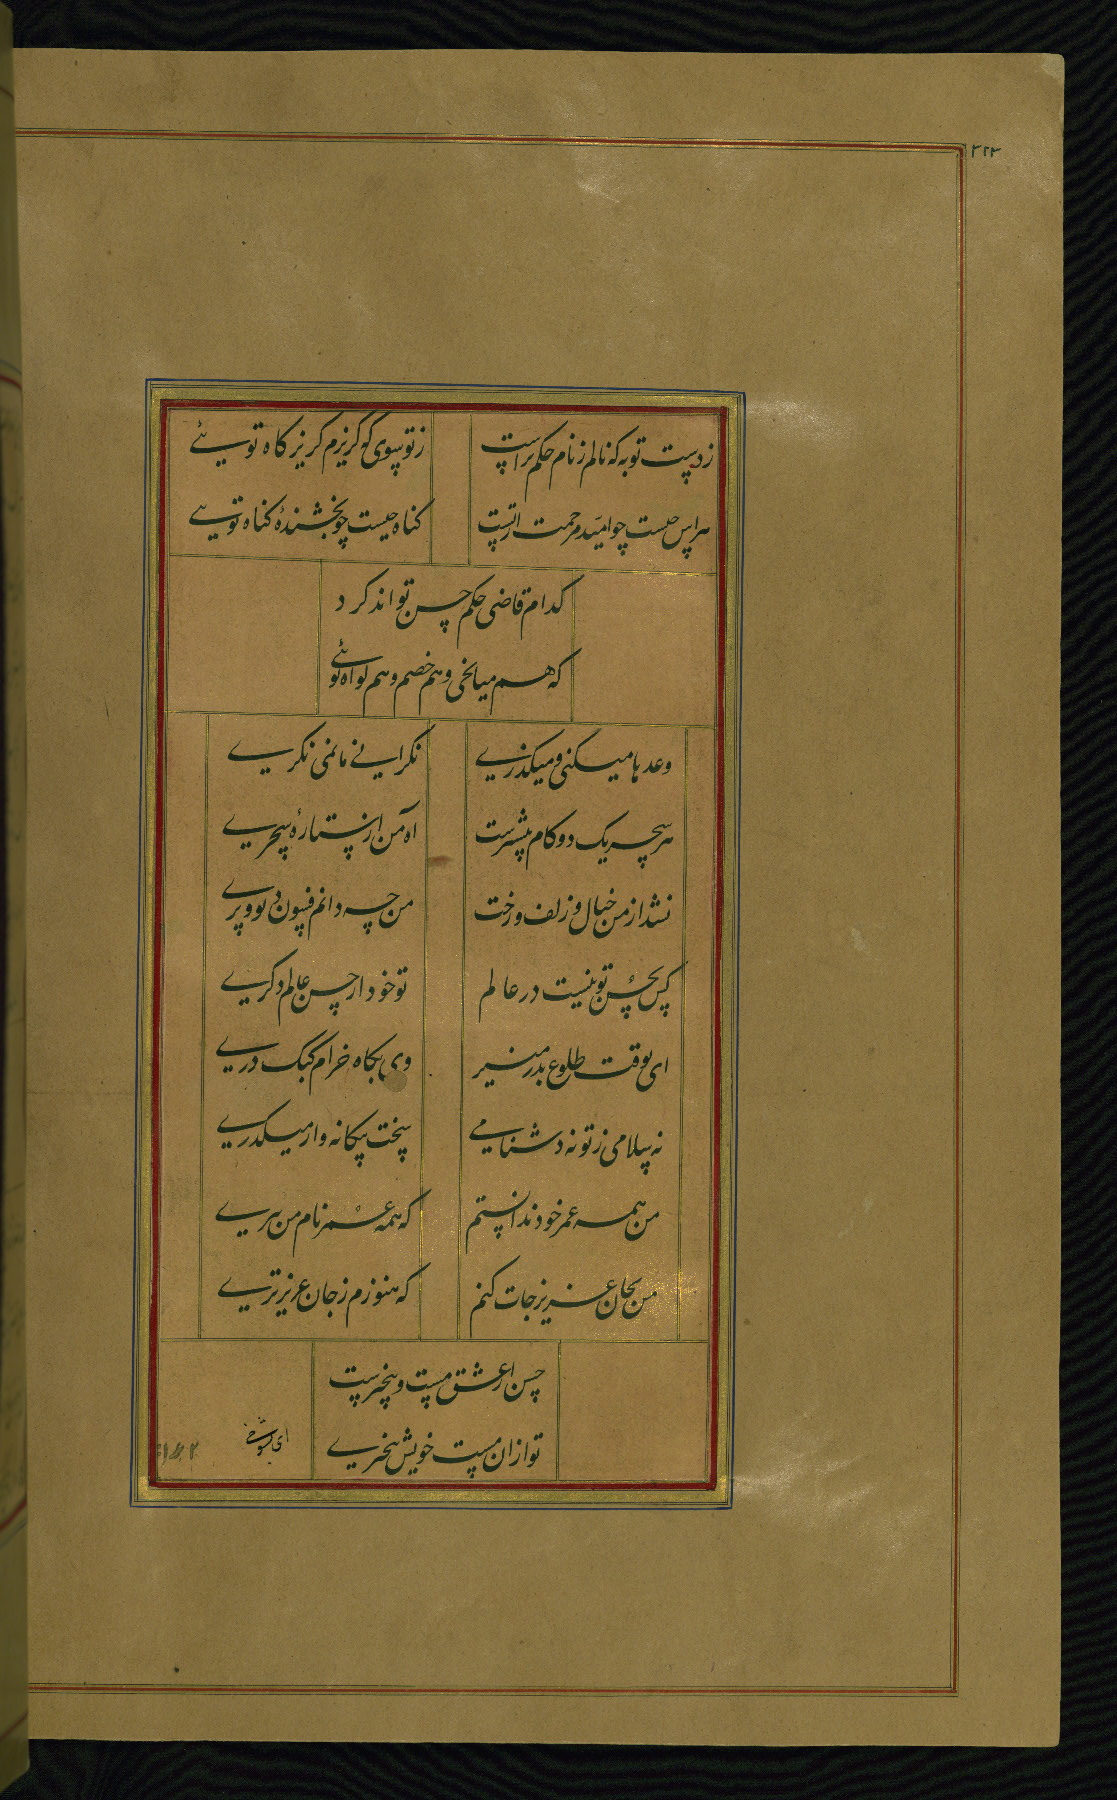 ۲۲۳
ز دست تو به که نالم ز نام حکم تراست
ز تو بسوی که گریزم گریز کاه توییٔ
هراس چیست چو امید مرحمت از تست
کناه چیست چو بخشندهٔ کناه تویی
کدام قاضی حکم حسن تواند کرد
که هم میانجی و هم خصم و هم کواه تویٔ
وعدها میکنی و میکذری
نکرانی ما نمی نکری
هر سحر یک دو کام پیشترست
آه من از ستارهٔ سحری
نشد از من خیال و زلف و رخت
من چه دانم فسون دیو و پری
کس بحسن تو نیست در عالم
تو خود از حسن عالم دکری
ای بوقت طلوع بدر منیر
وی بکاه خرام کبک دری
نه سلامی ز تو نه دشنامی
سخت بیکانه وار میکذری
من همه عمر خود ندانستم
که همه عمر نام من ببری
من بجان عزیز جات کنم
که هنوزم ز جان عزیزتری
حسن از عشق مست و بیخبرست
تو از ان مست خویش بیخبری